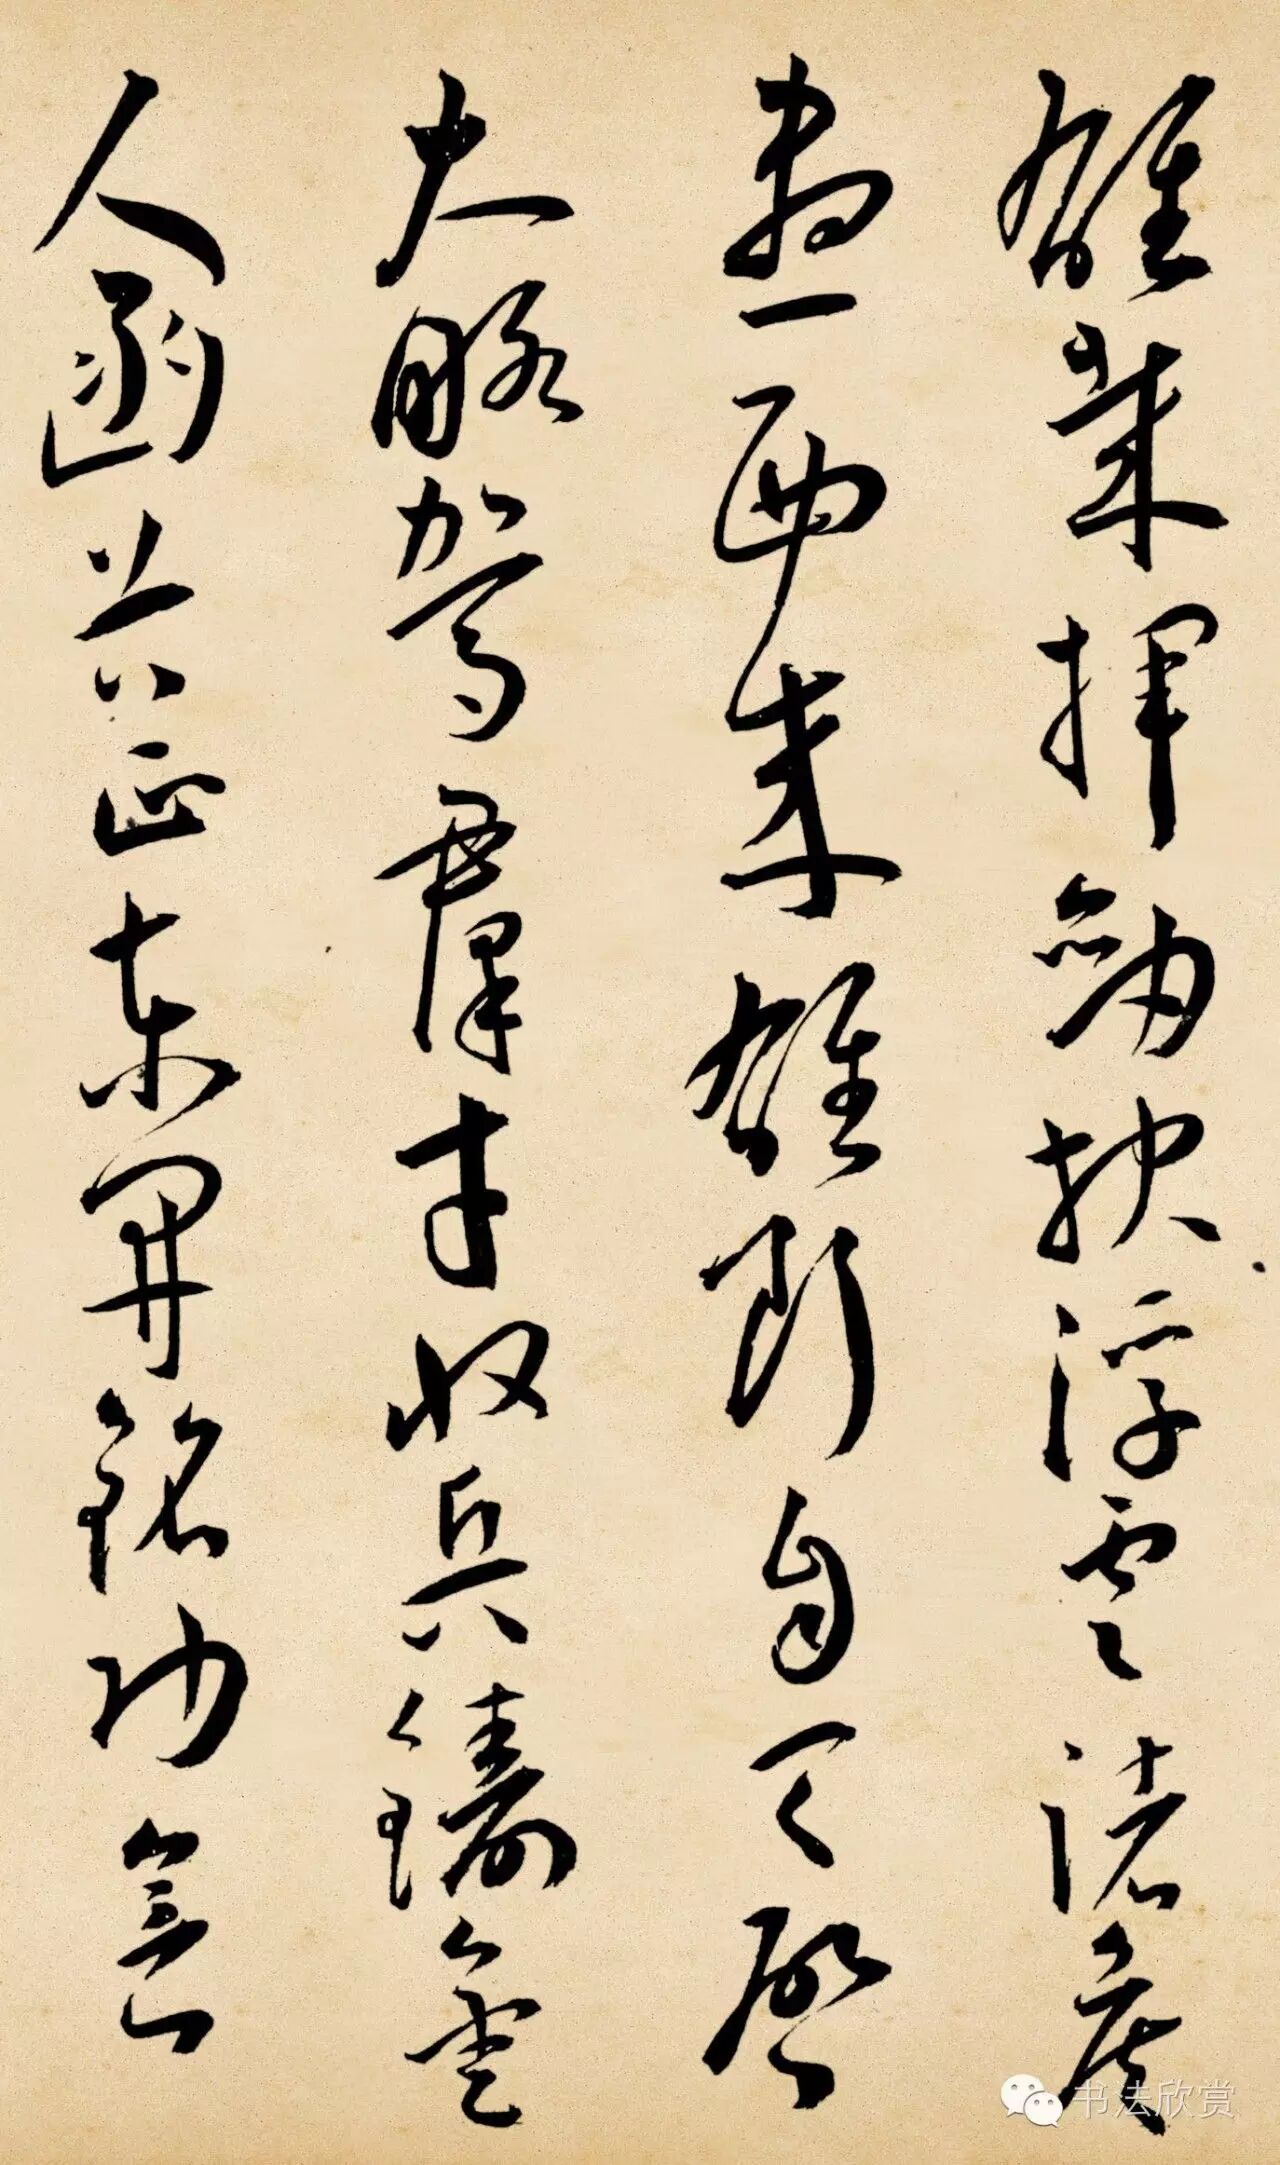 雄哉揮劍抉浮雲諸侯
盡西來雄斷自天啟
大略駕羣才收兵鑄金
人函谷正東開銘功會
书法欣赏